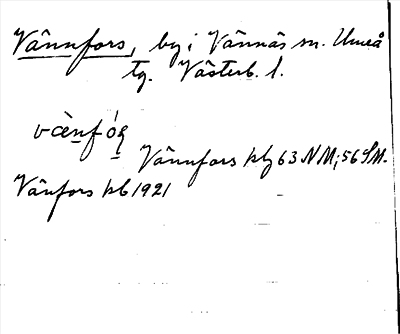 Vännfors, by i Vännäs sn. Umeå
tg. Västerb. l.
vȁ̀nfóʂ
Vännfors kbz 63 NM; 56 SM.
Vänfors kb 1921